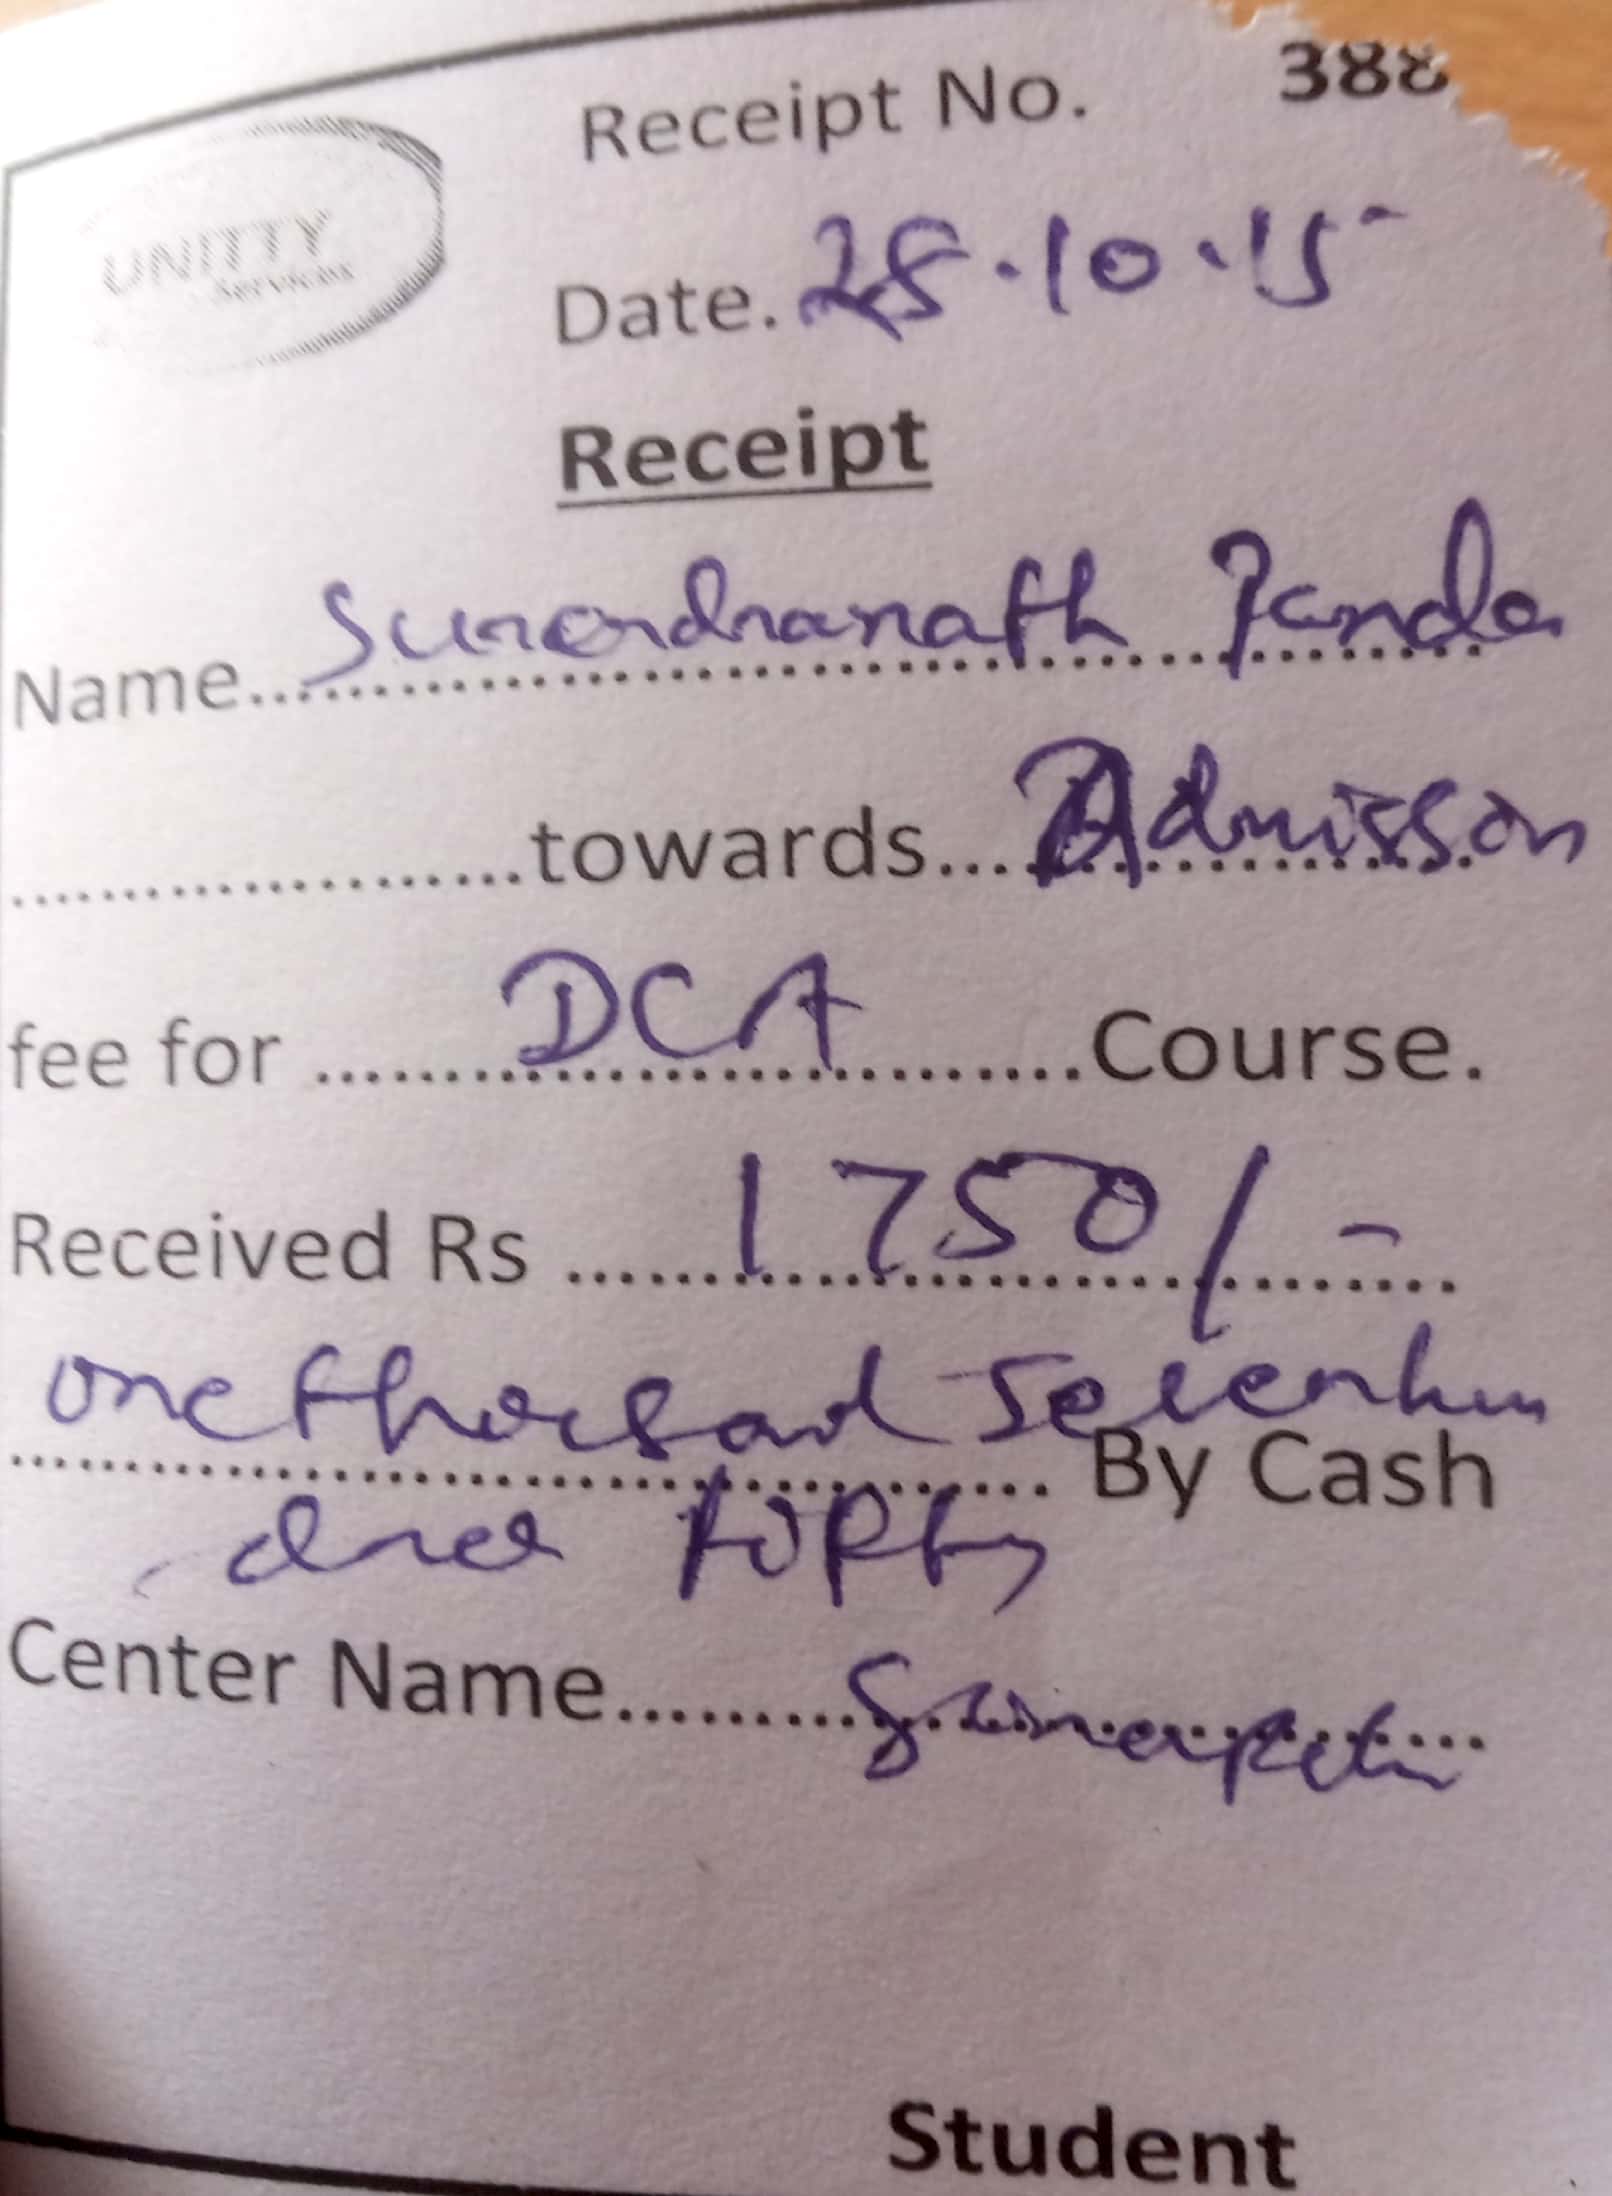 Receipt No. 388
UNITTY
Services
Date. 28.10.15
Receipt
Name... Surendranath Panda
...towards... Admisson
fee for ... DCA ... Course.
Received Rs ... 1750/-
one thousad Seven hun
... By Cash
dred fifty
Center Name...
Student